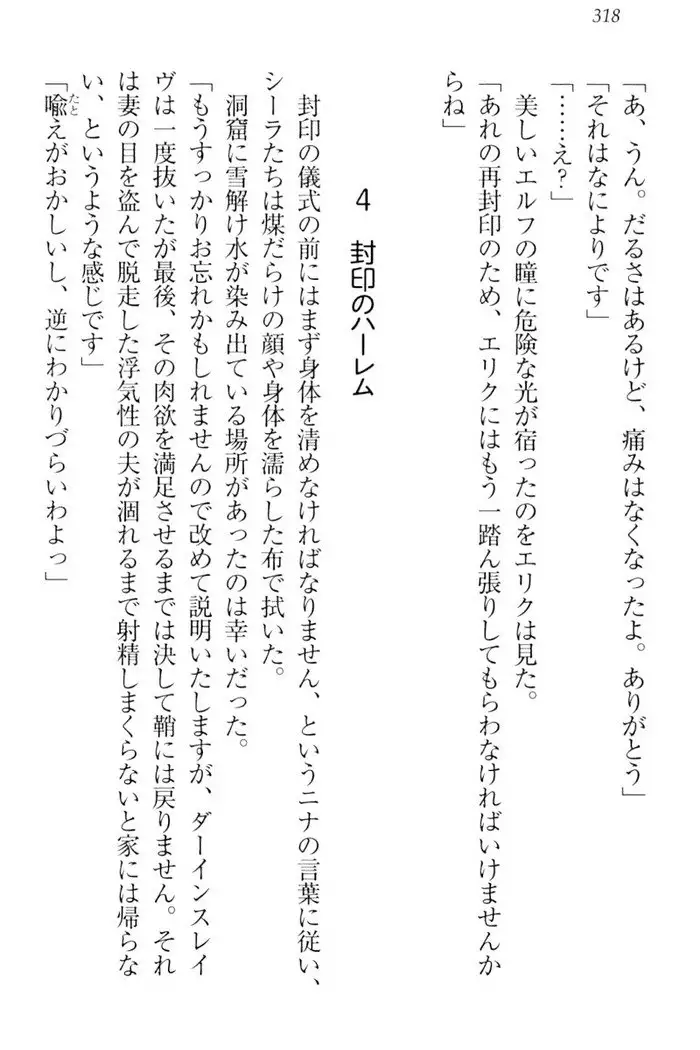 318
「あ、うん。だるさはあるけど、痛みはなくなったよ。ありがとう」
「それはなによりです」
「……え?」
美しいエルフの瞳に危険な光が宿ったのをエリクは見た。
「あれの再封印のため、エリクにはもう一踏ん張りしてもらわなければいけませんか
らね」
4 封印のハーレム
封印の儀式の前にはまず身体を清めなければなりません、というニナの言葉に従い、
シーラたちは煤だらけの顔や身体を濡らした布で拭いた。
洞窟に雪解け水が染み出ている場所があったのは幸いだった。
「もうすっかりお忘れかもしれませんので改めて説明いたしますが、ダーインスレイ
ヴは一度抜いたが最後、その肉欲を満足させるまでは決して鞘には戻りません。それ
は妻の目を盗んで脱走した浮気性の夫が涸れるまで射精しまくらないと家には帰らな
い、というような感じです」
「喩えがおかしいし、逆にわかりづらいわよっ」
たと